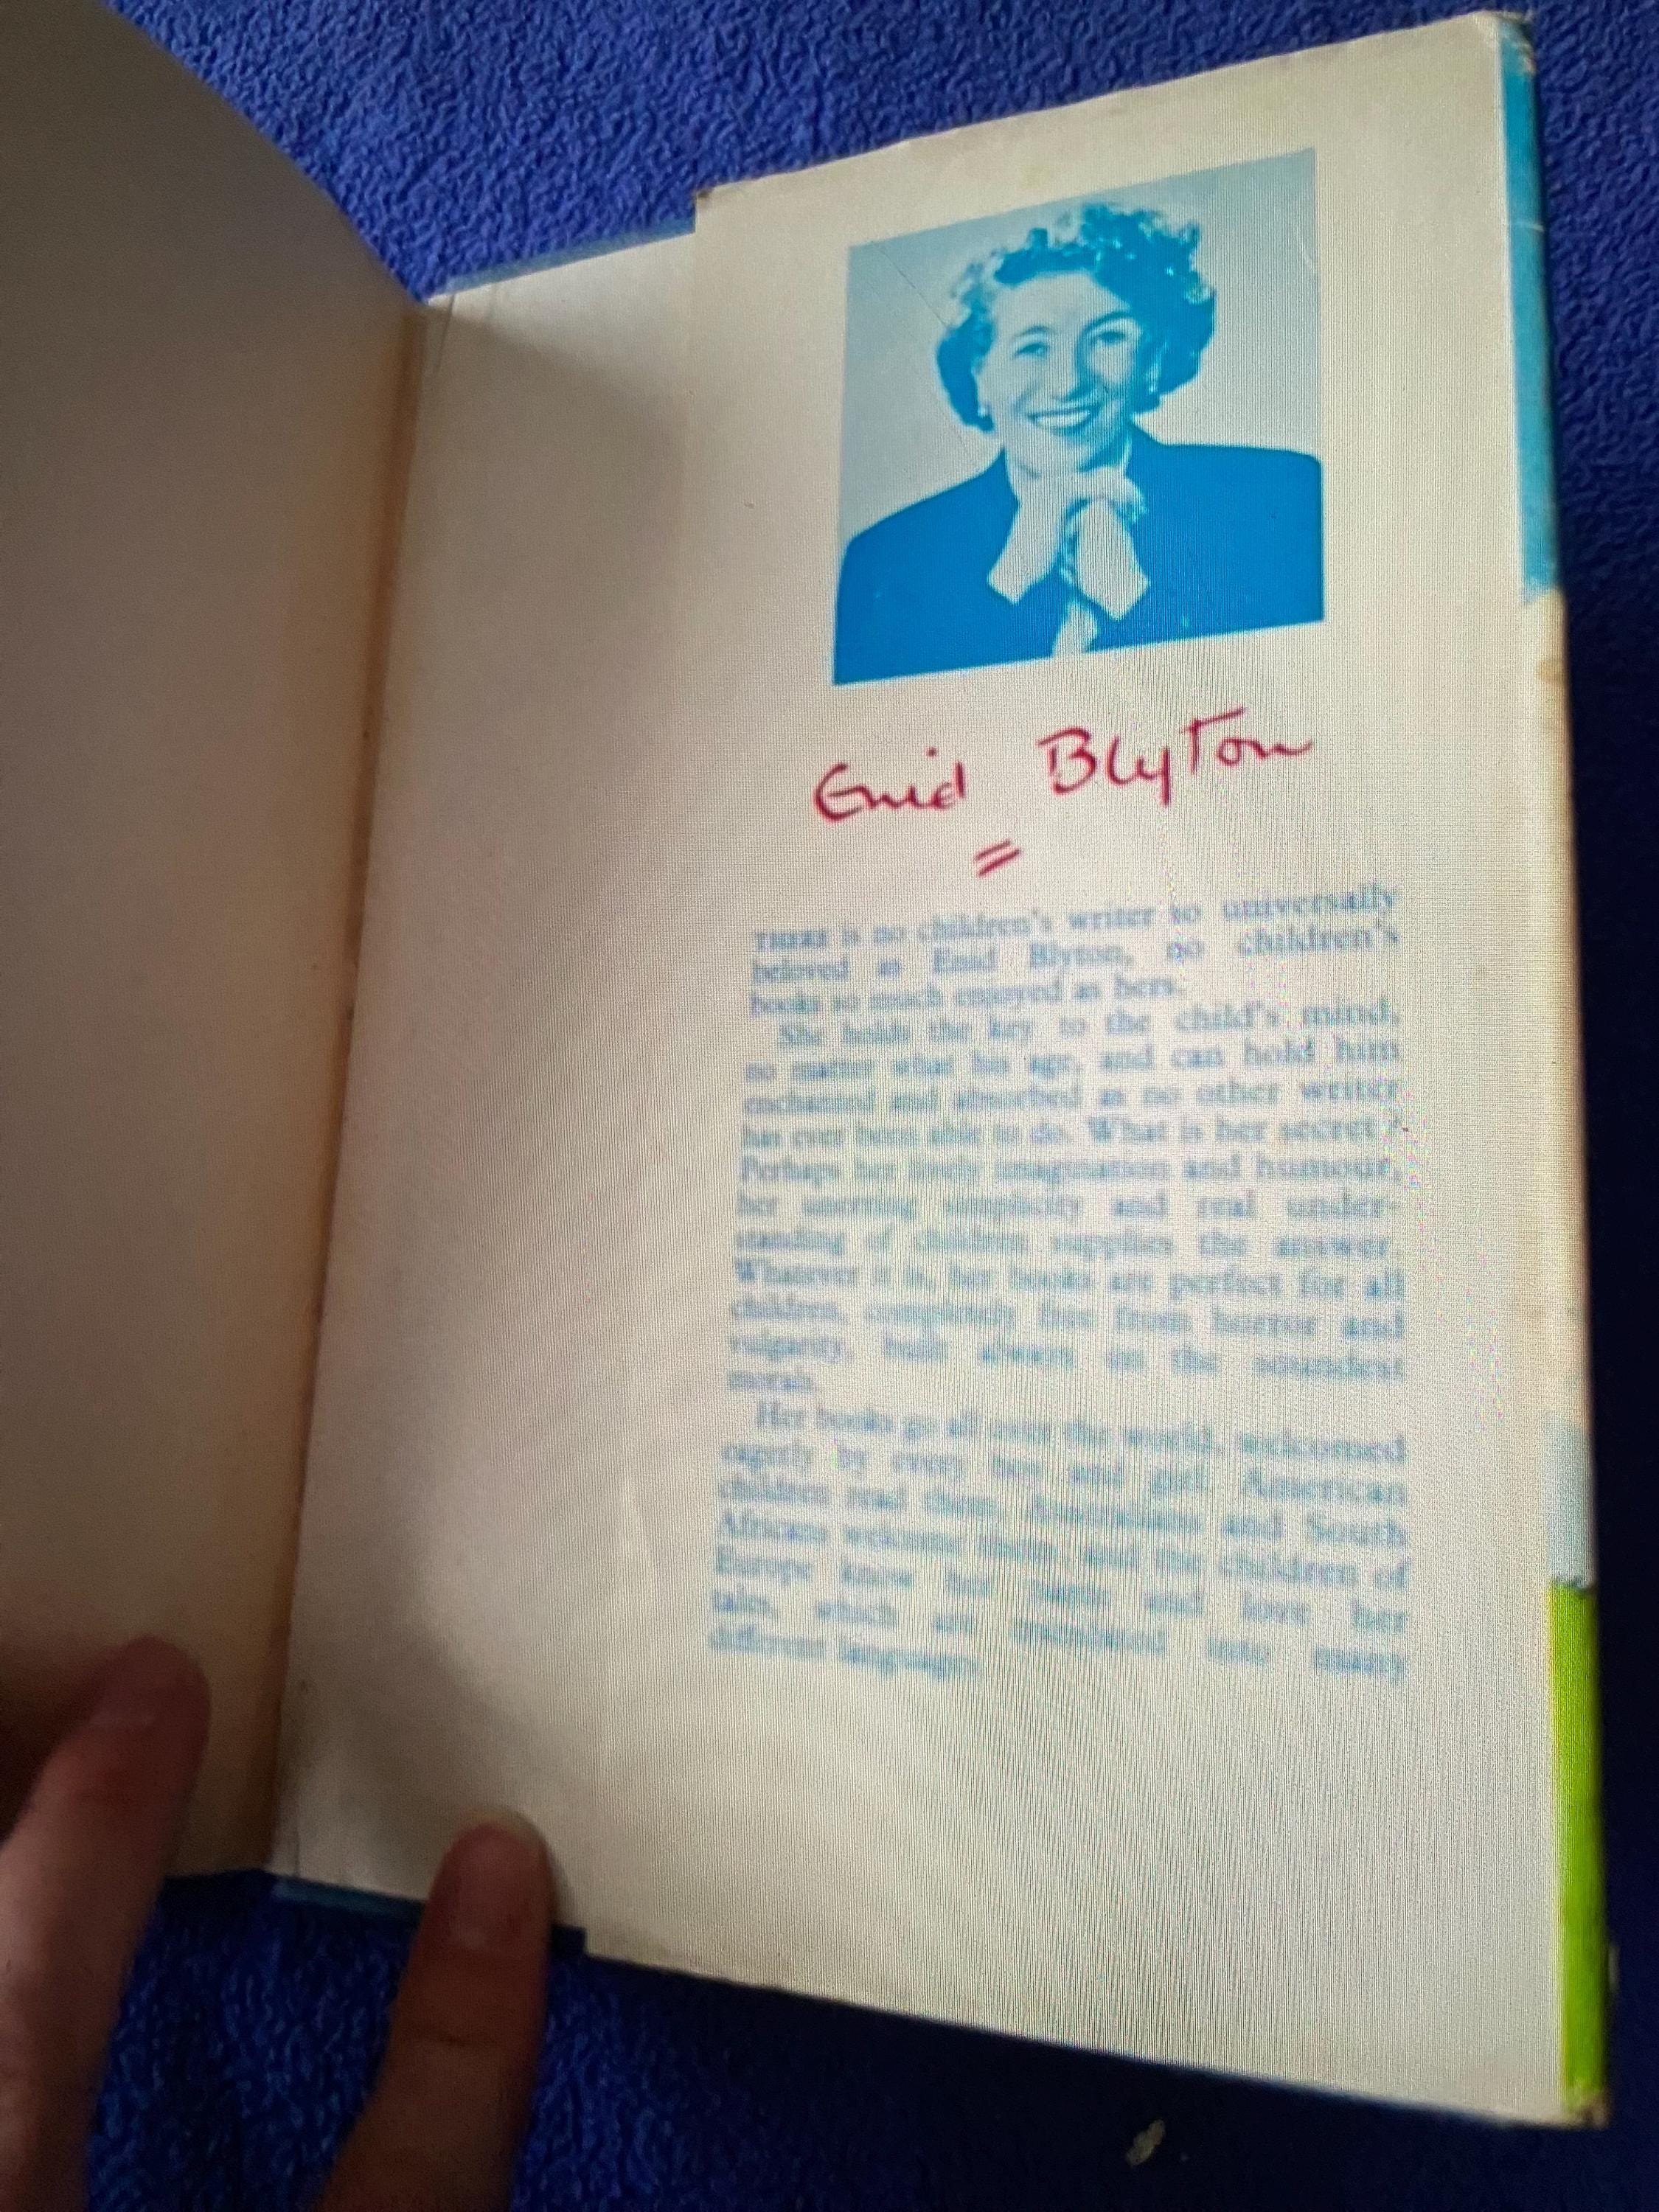 Enid Blyton
THERE is no children's writer so universally
beloved as Enid Blyton, no children's
books so much enjoyed as hers.
She holds the key to the child's mind,
no matter what his age, and can hold him
enchanted and absorbed as no other writer
has ever been able to do. What is her secret?
Perhaps her lively imagination and humour,
her unerring simplicity and real under-
standing of children supplies the answer.
Whatever it is, her books are perfect for all
children, completely free from horror and
vulgarity, built always on the soundest
morals.
Her books go all over the world, welcomed
eagerly by every boy and girl. American
children read them, Australians and South
Africans welcome them, and the children of
Europe know her name and love her
tales, which are translated into many
different languages.